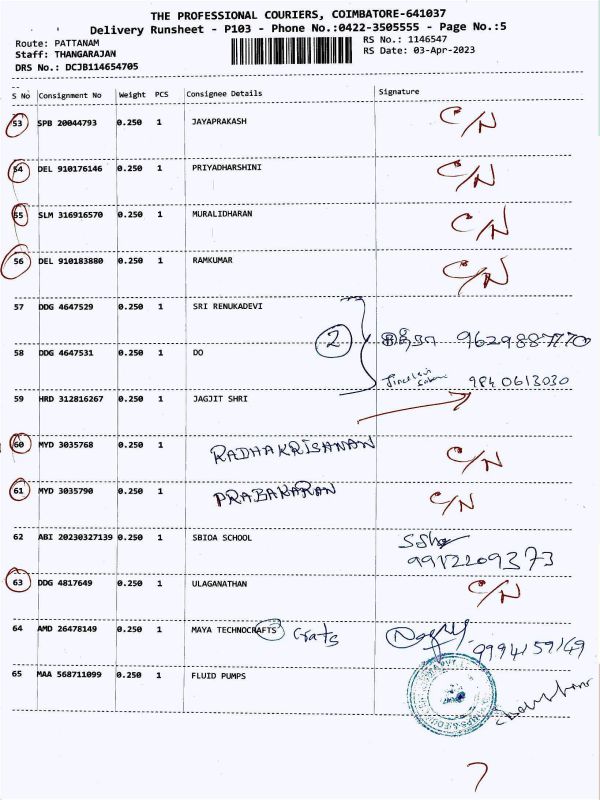 THE PROFESSIONAL COURIERS, COIMBATORE-641037
Delivery Runsheet - P103 - Phone No.:0422-3505555 - Page No.:5
Route: PATTANAM
RS No.: 1146547
Staff: THANGARAJAN
RS Date: 03-Apr-2023
DRS No.: DCJB114654705
S No Consignment No Weight PCS Consignee Details Signature
53 SPB 20044793 0.250 1 JAYAPRAKASH C/N
54 DEL 910176146 0.250 1 PRIYADHARSHINI C/N
55 SLM 316916570 0.250 1 MURALIDHARAN C/N
56 DEL 910183880 0.250 1 RAMKUMAR C/N
57 DDG 4647529 0.250 1 SRI RENUKADEVI
2 9629887770
58 DDG 4647531 0.250 1 DO
9840613030
59 HRD 312816267 0.250 1 JAGJIT SHRI
60 MYD 3035768 0.250 1 RADHAKRISHNAN C/N
61 MYD 3035790 0.250 1 PRABAKARAN C/N
62 ABI 20230327139 0.250 1 SBIOA SCHOOL
9912209373
63 DDG 4817649 0.250 1 ULAGANATHAN C/N
64 AMD 26478149 0.250 1 MAYA TECHNOCRAFTS Crafts
9994159149
65 MAA 568711099 0.250 1 FLUID PUMPS
7